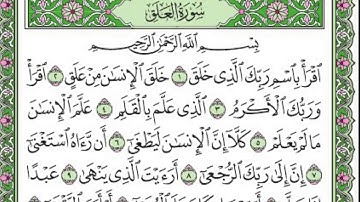 سُورَةُ العَلَقِ
بِسْمِ ٱللَّهِ ٱلرَّحْمَٰنِ ٱلرَّحِيمِ
ٱقْرَأْ بِٱسْمِ رَبِّكَ ٱلَّذِى خَلَقَ ١ خَلَقَ ٱلْإِنسَٰنَ مِنْ عَلَقٍ ٢ ٱقْرَأْ
وَرَبُّكَ ٱلْأَكْرَمُ ٣ ٱلَّذِى عَلَّمَ بِٱلْقَلَمِ ٤ عَلَّمَ ٱلْإِنسَٰنَ
مَا لَمْ يَعْلَمْ ٥ كَلَّآ إِنَّ ٱلْإِنسَٰنَ لَيَطْغَىٰٓ ٦ أَن رَّءَاهُ ٱسْتَغْنَىٰٓ
٧ إِنَّ إِلَىٰ رَبِّكَ ٱلرُّجْعَىٰٓ ٨ أَرَءَيْتَ ٱلَّذِى يَنْهَىٰ ٩ عَبْدًا